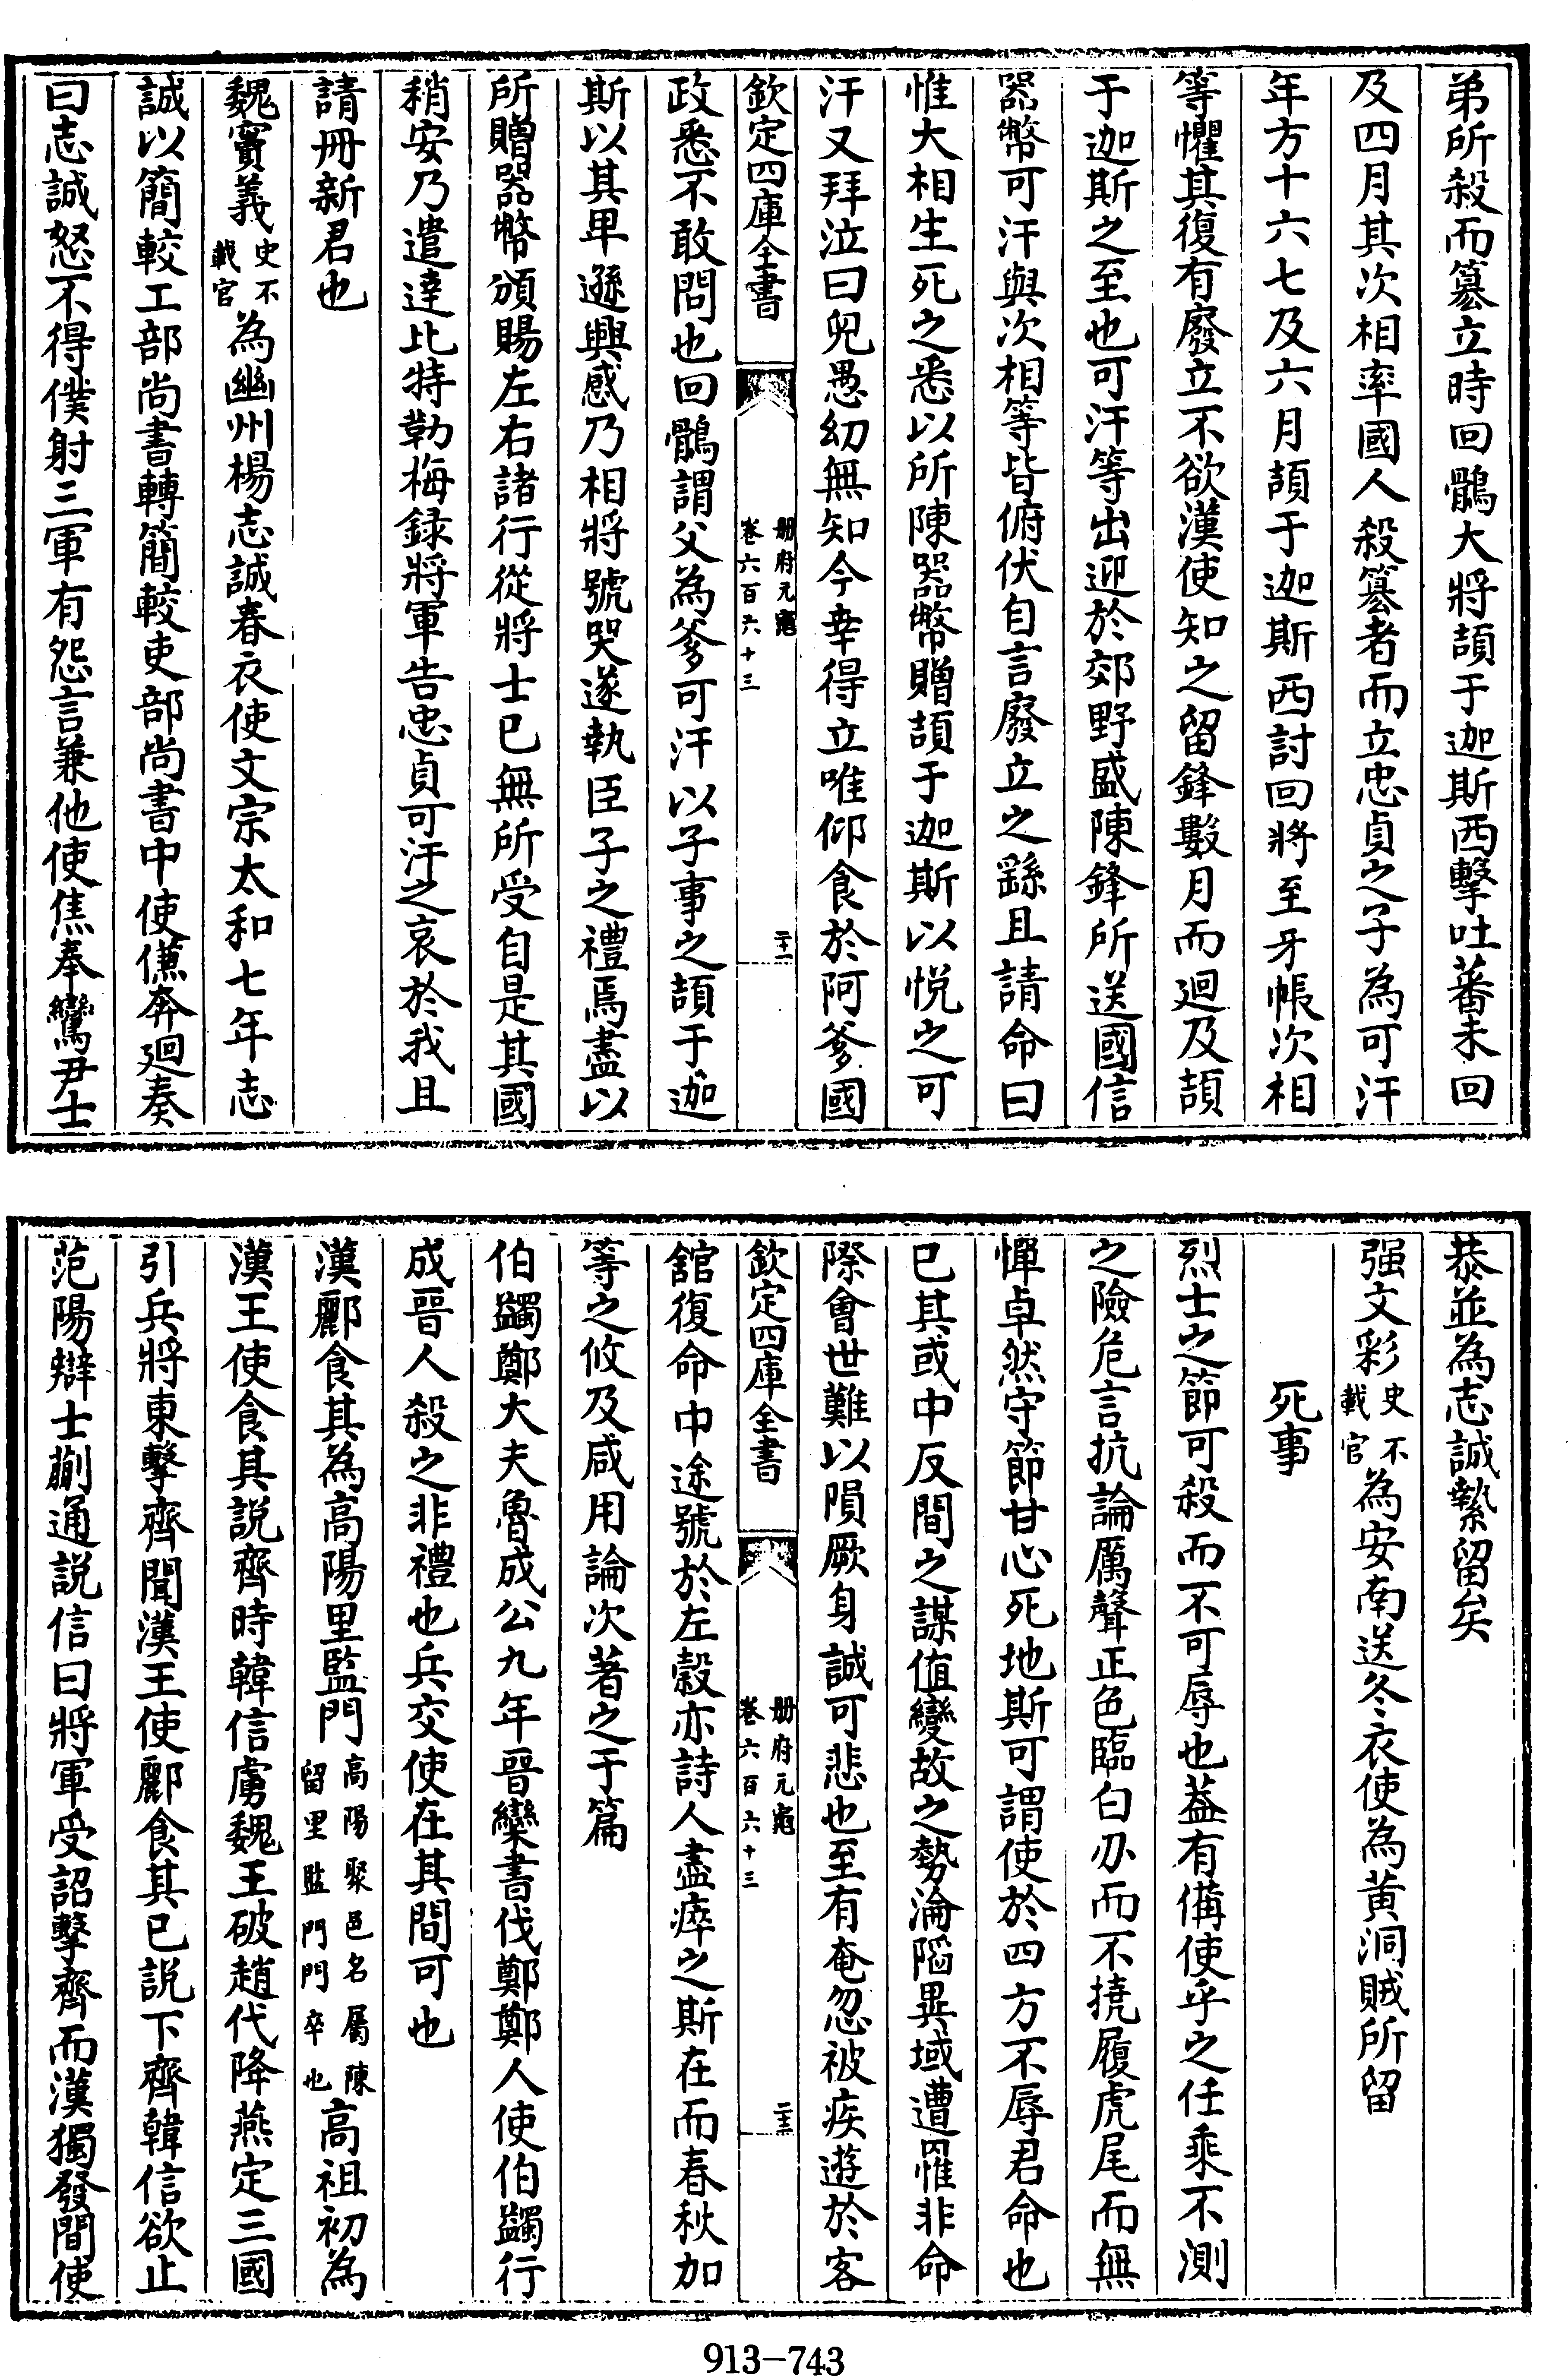 弟所殺而簒立時回鶻大將頡于迦斯西擊吐蕃未回
及四月其次相率國人殺簒者而立忠貞之子為可汗
年方十六七及六月頡于迦斯西討回將至牙帳次相
等懼其復有廢立不欲漢使知之留鋒數月而迴及頡
于迦斯之至也可汗等出迎於郊野盛陳鋒所送國信
器幣可汗與次相等皆俯伏自言廢立之繇且請命曰
惟大相生死之悉以所陳器幣贈頡于迦斯以悦之可
汗又拜泣曰兒愚幼無知今幸得立唯仰食於阿爹國
欽定四庫全書
册府元龜
卷六百六十三
二十二
政悉不敢問也回鶻謂父為爹可汗以子事之頡于迦
斯以其卑遜興感乃相將號哭遂執臣子之禮焉盡以
所贈器幣頒賜左右諸行從將士已無所受自是其國
稍安乃遣達比特勒梅録將軍告忠貞可汗之哀於我且
請冊新君也
魏寳義史不載官為幽州楊志誠春衣使文宗太和七年志
誠以簡較工部尚書轉簡較吏部尚書中使僬奔迴奏
曰志誠怒不得僕射三軍有怨言兼他使焦奉鸞尹士
恭並為志誠縶留矣
强文彩史不載官為安南送冬衣使為黄洞賊所留
死事
烈士之節可殺而不可辱也葢有備使乎之任乘不測
之險危言抗論厲聲正色臨白刃而不撓履虎尾而無
憚卓然守節甘心死地斯可謂使於四方不辱君命也
已其或中反間之謀值變故之勢淪陷異域遭罹非命
際會世難以隕厥身誠可悲也至有奄忽被疾遊於客
欽定四庫全書
册府元龜
卷六百六十三
二十三
舘復命中途號於左轂亦詩人盡瘁之斯在而春秋加
等之攸及咸用論次著之于篇
伯蠲鄭大夫魯成公九年晉欒書伐鄭鄭人使伯蠲行
成晉人殺之非禮也兵交使在其間可也
漢酈食其為高陽里監門高陽聚邑名屬陳留里監門門卒也高祖初為
漢王使食其説齊時韓信虜魏王破趙代降燕定三國
引兵將東擊齊聞漢王使酈食其已説下齊韓信欲止
范陽辯士蒯通説信曰將軍受詔擊齊而漢獨發間使
913-743